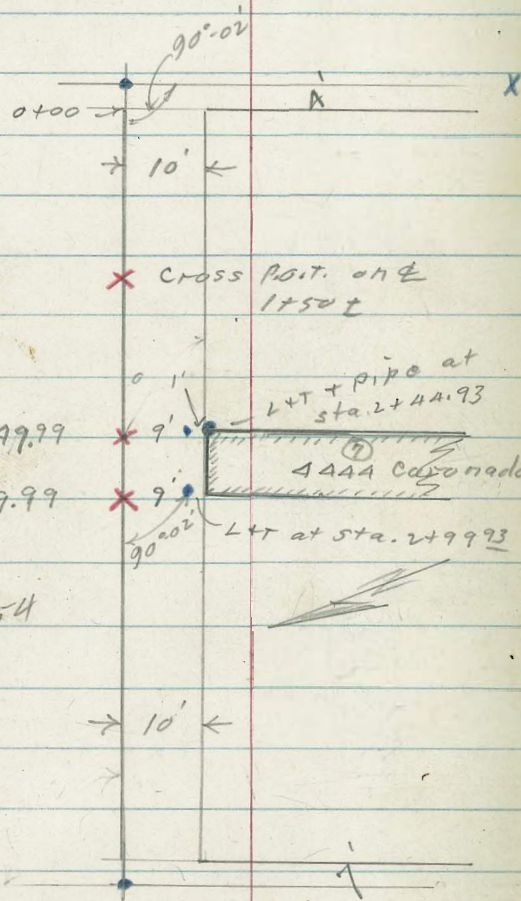 90°-02'
X
0+00
A
10'
Cross P.O.T. on ℄
1+50 ±
1'
L+T + pipe at
sta. 2+44.93
49.99
9'
7
4444 Coronado
9.99
9'
90°02'
L+T at sta. 2+99 93
-4
10'